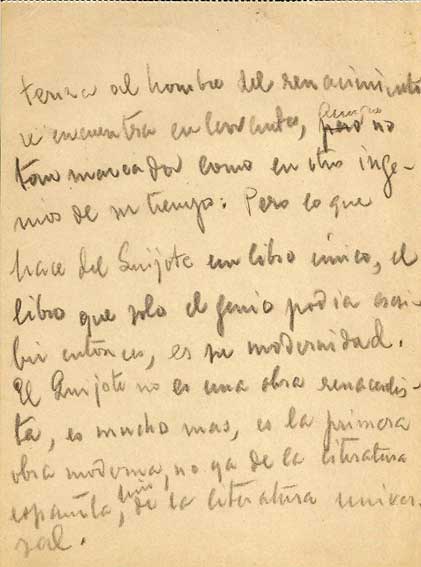 teriza al hombre del renacimiento
se encuentra en Cervantes, aunque no
tan marcados como en otro inge-
nios de su tiempo: Pero lo que
hace del Quijote un libro único, el
libro que solo el genio podia escri-
bir entonces, es su modernidad.
El Quijote no es una obra renacentis-
ta, es mucho mas, es la primera
obra moderna, no ya de la literatura
española, sino de la literatura univer-
sal.